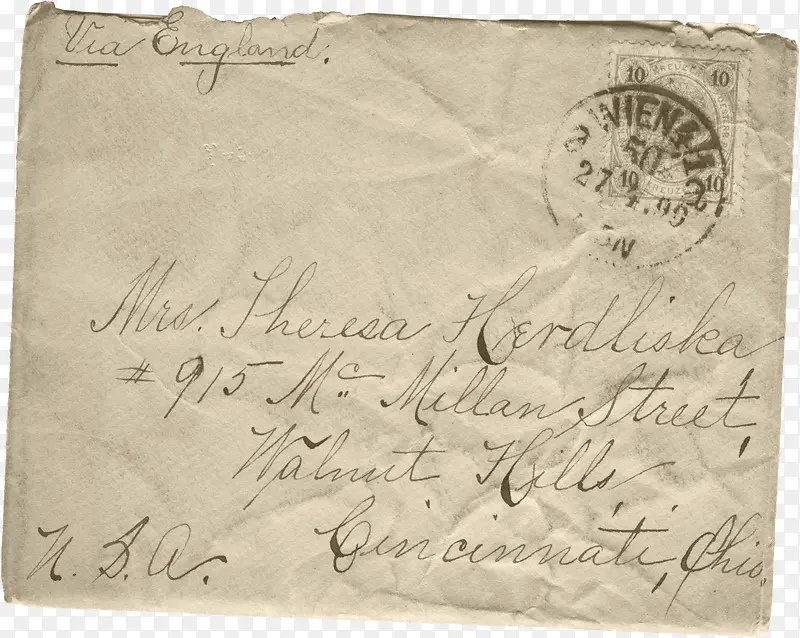 Via England.
10 KREUZER 10
WIEN 4/1
50
27 4.90
10 KREUZER 10
Mrs. Theresa Herdliska
# 915 Mc Millan Street,
Walnut Hills,
Cincinnati, Ohio.
U.S.A.